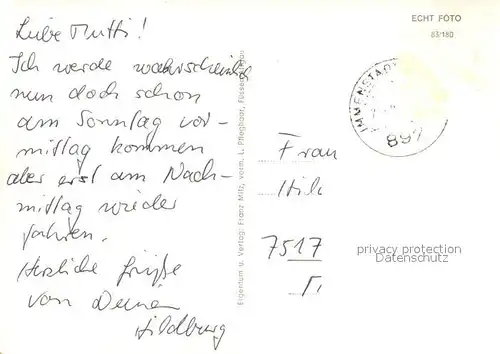 Liebe Mutti!
Ich werde wahrscheinlich
nun doch schon
am Sonntag vor-
mittag kommen
aber erst am Nach-
mittag wieder
fahren.
Herzliche Grüße
von Deiner
Hildburg
Eigentum u. Verlag: Franz Milz, vorm. L. Pfleghaar, Füssen
ECHT FOTO
83/180
IMMENSTADT
897
Frau
Hil
7517
privacy protection
Datenschutz